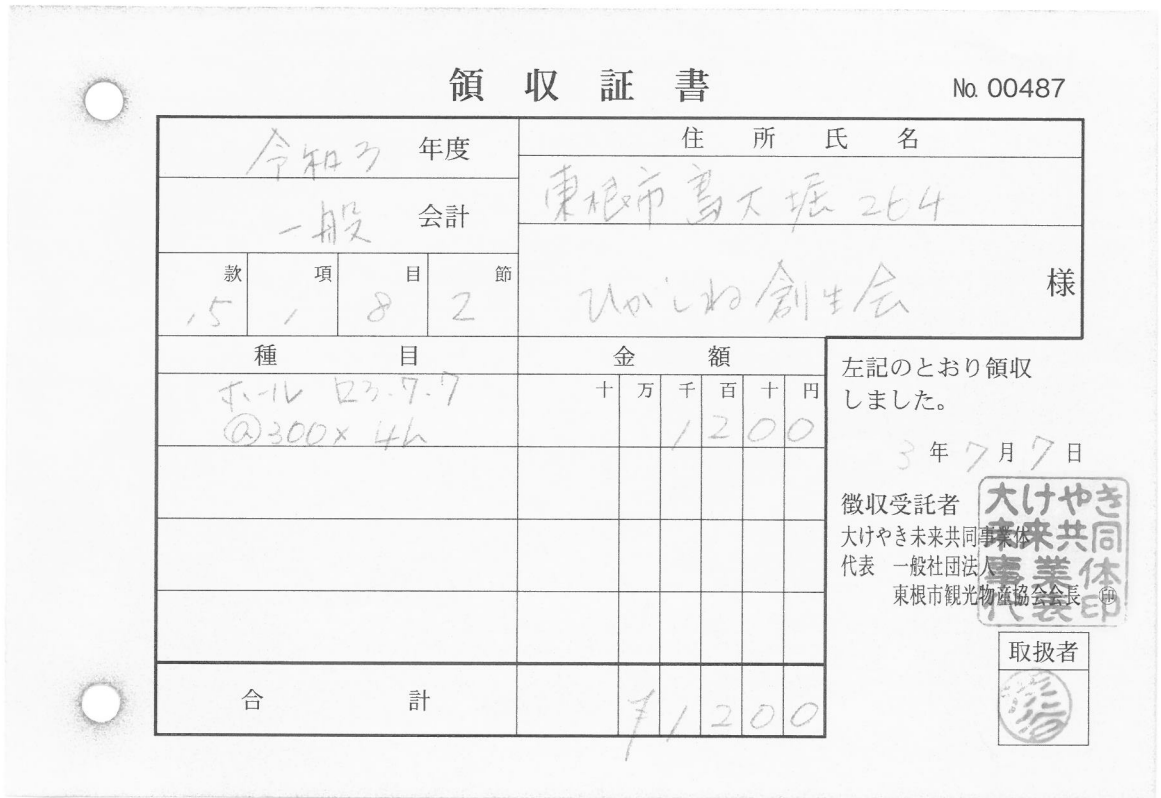 領収証書
No. 00487
令和3 年度
一般 会計
款 項 目 節
15 1 8 2
住所氏名
東根市大字大堀264
ひがしね創生会 様
種目 金額
十 万 千 百 十 円
ホール R3.7.7
@300× 4h
1200
合計 ¥1200
左記のとおり領収
しました。
3年7月7日
徴収受託者
大けやき未来共同事業体
代表 一般社団法人
東根市観光物産協会会長 ㊞
大けやき
未来共同
事業体
代表印
取扱者